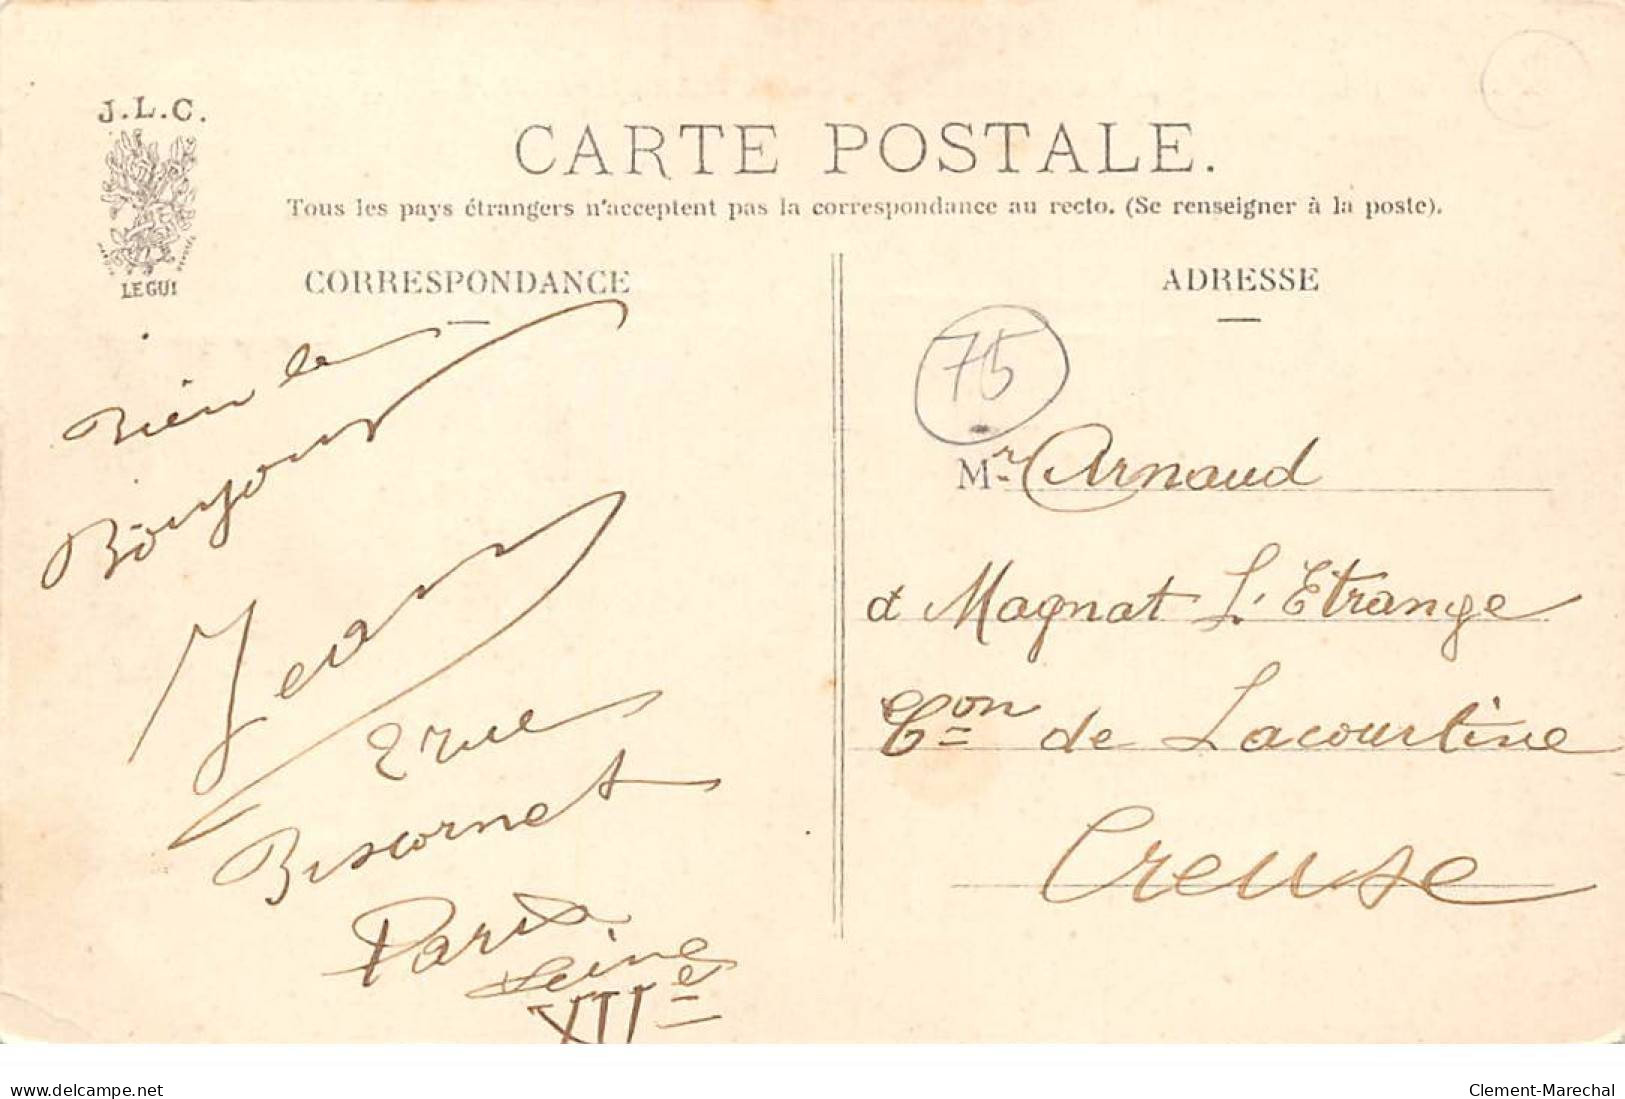 J.L.C.
LE GUI
CARTE POSTALE.
Tous les pays étrangers n'acceptent pas la correspondance au recto. (Se renseigner à la poste).
CORRESPONDANCE
Bien le
Bonjour
Jean
2 rue
Biscornet
Paris
Seine
XIIe
ADRESSE
75
Mr Arnaud
à Magnat L'Etrange
Con de Lacourtine
Creuse
delcampe.net
Clement-Marechal